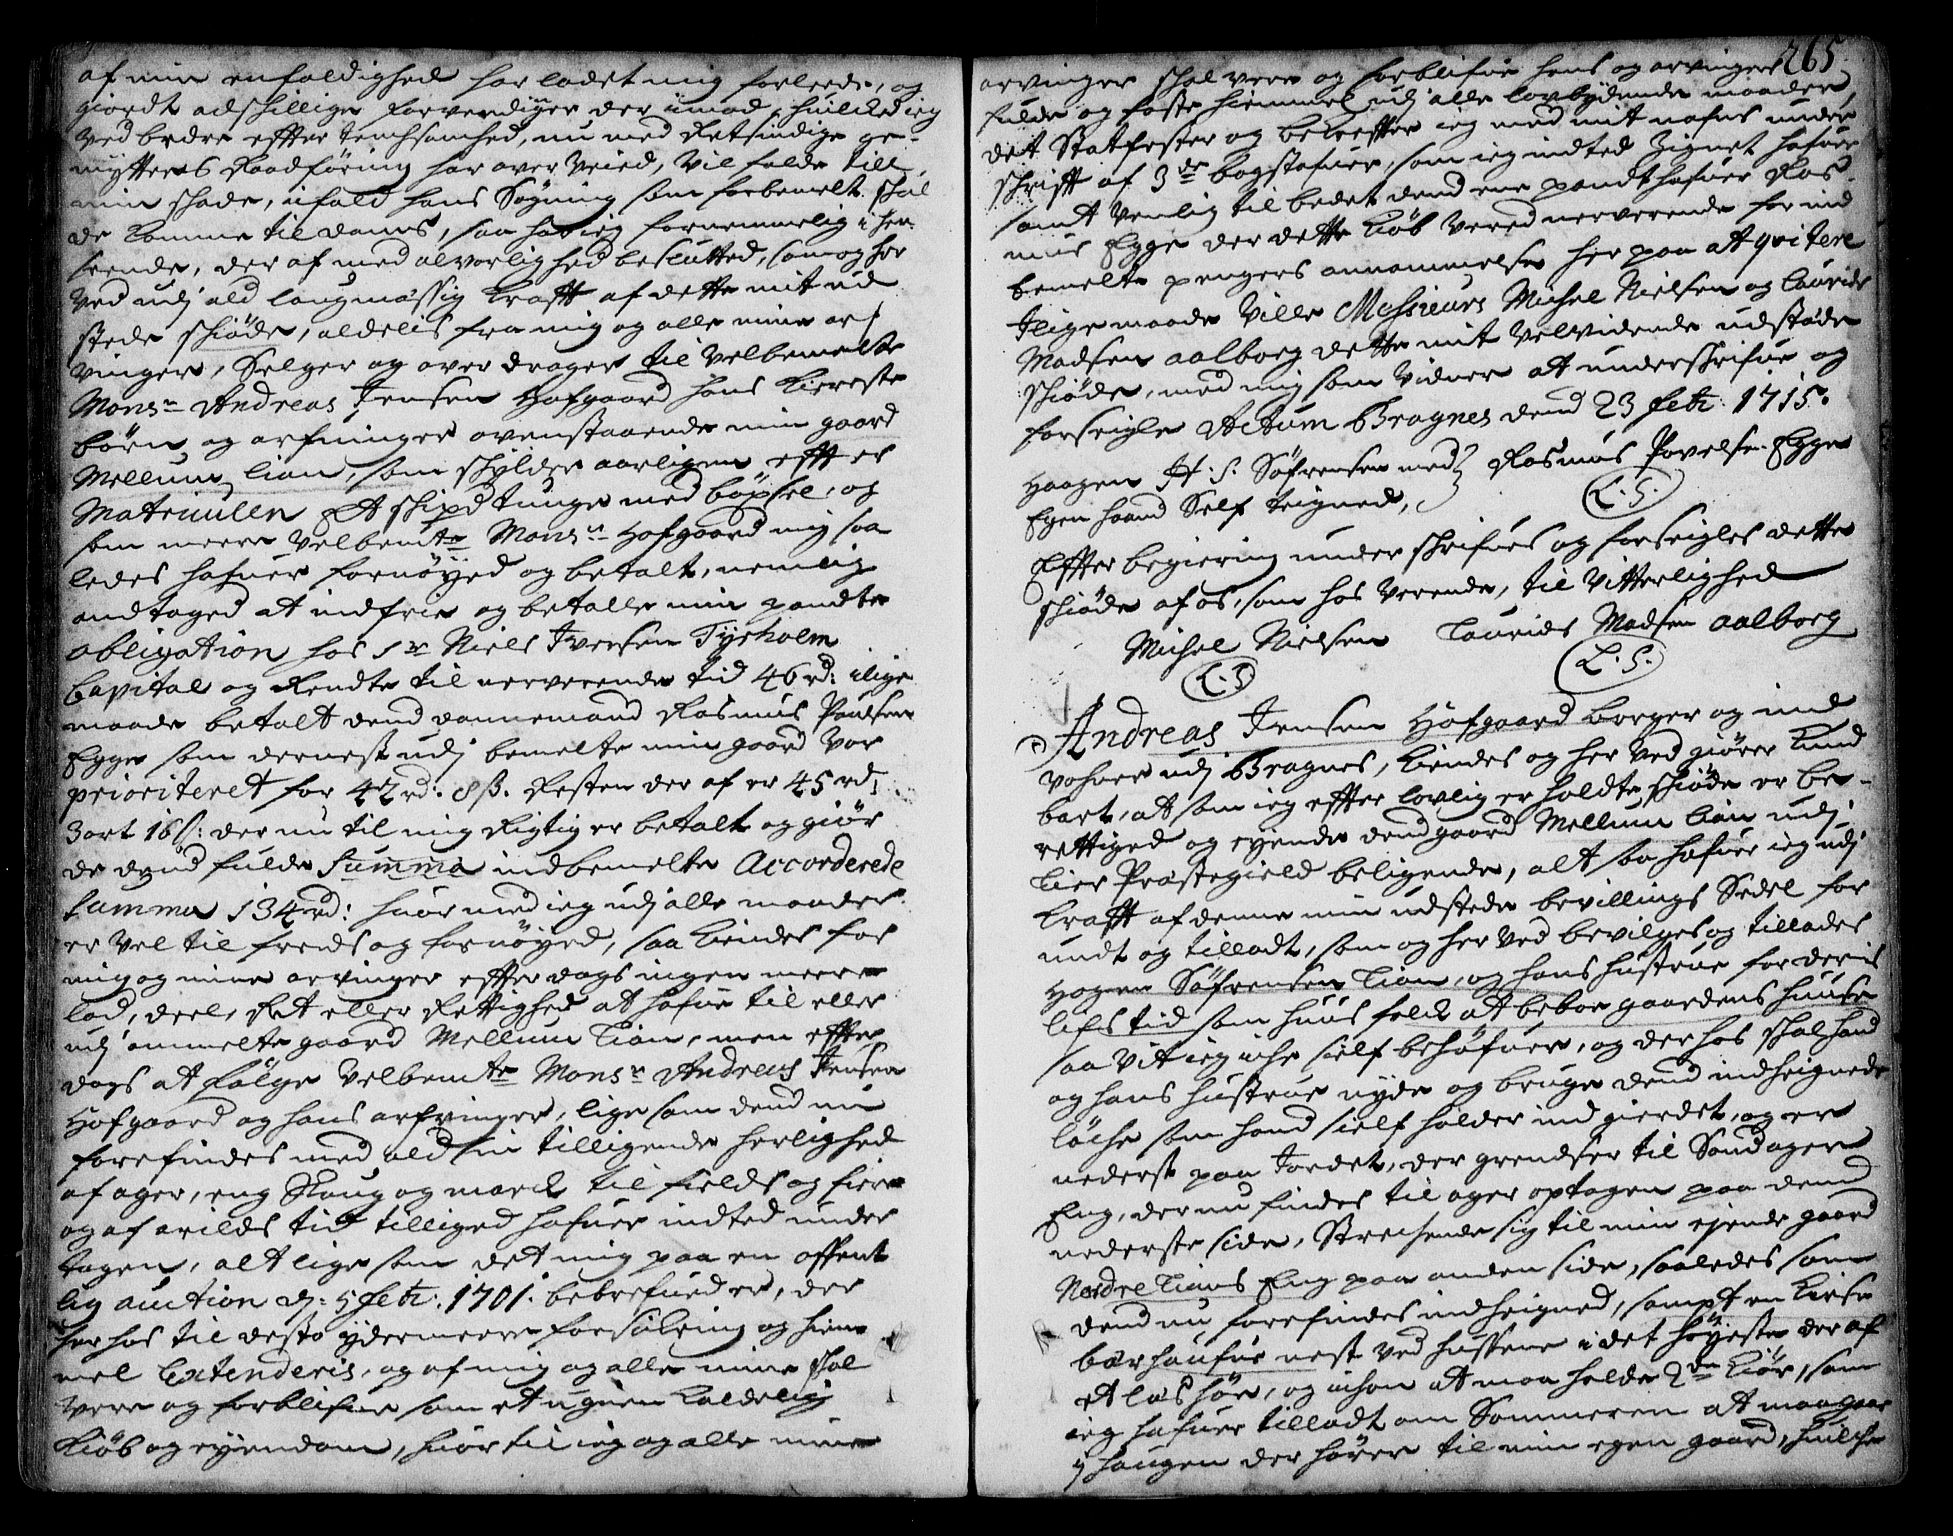 af min enfoldighed har ladet mig forleede, og
giordt adskillige forverdiger der imod, huilked ieg
ved bedre effter tenchsomhed, nu med Retsindige ge-
mytters Raadföring har over veied, vil falde till
min skade, ifald hans Sögning som forbemelt skul
de komme til doms, saa har ieg fornemmelig i hen
seende, der af med alvorlighed beslutted, som og her
ved udj ald laugmessig krafft af dette mit ud
stede skiöde, aldelis fra mig og alle mine ar
vinger, Selger og over drager til velbemelte
Monsr Andreas Jensen Hofgaard hans kiereste
börn og arfvinger ovenstaaende min gaard
Mellum Lian, som skylder aarligen effter
Matriculen Et skipd tunge med böxsel, og
som meere velbemte Monsr Hofgaard mig saa
ledes hafuer fornöyed og betalt, nemlig
andtaged at indfrie og betalle min pandte
obligation hos Sr Niels Iversen Tyrholm
Capital og Rendte til nerverende tid 46 rd: ilige
maade betalt dend dannemand Rasmus Poulsen
Egge som dernest udj bemelte min gaard var
prioriteret for 42 rd: 8 ß. Resten der af er 45 rd
3 ort 16 ß: der nu til mig Rigtig er betalt og giör
de dend fulde Summa indbemelte Accorderede
Summa 134 rd: huor med ieg udj alle maader
er vel til freds og fornöyed, saa kiendes for
mig og mine arvinger effter dags ingen meere
lod, deel, Ret eller Rettighed at hafue til eller
udj ommelte gaard Mellum Lian, men effter
dags at fölge velbemte Monsr Andreas Jensen
Hofgaard og hans arfvinger, lige som dend nu
forefindes med ald sin tilligende herlighed
af ager, eng Skoug og marck til fields og fiere
og af arilds tid tilliged hafuer indted under
tagen, alt lige som det mig paa en offent
lig auction d: 5 febr: 1701. bebrefued er, der
her hos til desto ydermeere forsikring og hiem
mel Extenderis, og af mig og alle mine skal
vere og forblifue som et uguenkaldelig
kiöb og eyendom, huor til ieg og alle mine
265
arvinger skal vere og forblifue hans og arvingers
fulde og faste hiemmel udj alle lovbydende maader,
det Statfester og bekreffter ieg med mit nafns under
skrifft af 3de bogstafuer, som ieg indted Zignet hafuer
samt venlig til bedet dend ene pandthafuer Ras-
mus Egge der dette kiöb vered nerverende for ind
bemelte pengers annammelse her paa at qvitere
Ilige maade ville Messieurs Michel Nielsen og Laurids
Madsen aalborg dette mit velvidende udstede
skiöde, med mig som vidner at underskrifue og
forseigle Actum Bragnes dend 23 febr: 1715.
Haagen H. S. Söfrensen med Rasmus Povelsen Egge
Egen haand Self teigned, L. S.
Effter begiering under skrifues og forseigles dette
skiöde af os, som hos verende, til vitterlighed
Michel Nielsen Laurids Madsen aalborg
L. S. L. S.
Andreas Jensen Hofgaard borger og ind
vohner udj Bragnes, kiendes og her ved giörer kund
bart, at som ieg effter lovlig erholdte skiöde er be-
rettiged og eyende dend gaard Mellum Lian udj
Lier Præstegield beligende, alt saa hafuer ieg udj
krafft af denne min udstede bevillings Sedel for
undt og tilladt, som og her ved bevilges og tillades
Hogen Söfrensen Lian, og hans hustrue for deris
lifs tid som huus folck at beboe gaardens huuse
saa vit ieg iche sielf behöfuer, og der hos skal hand
og hans hustrue nyde og bruge dend indheignede
löche som hand sielf holder ind gierdet, og er
nederst paa Jordet, der grendser til Sandager
Eng, der nu findes til ager optagen paa dend
nederste side, Strechende sig til min ejende gaard
Nordre Lians Eng paa anden side, saaledes som
dend nu forefindes indheigned, sampt en kirse
bær haufue nest ved hussene i det höyeste der af
et las höe, og ichon at maa holde 2de kiör, som
ieg hafuer tilladt om Sommeren at maa gaae
j haugen der hörer til min egen gaard, huilche